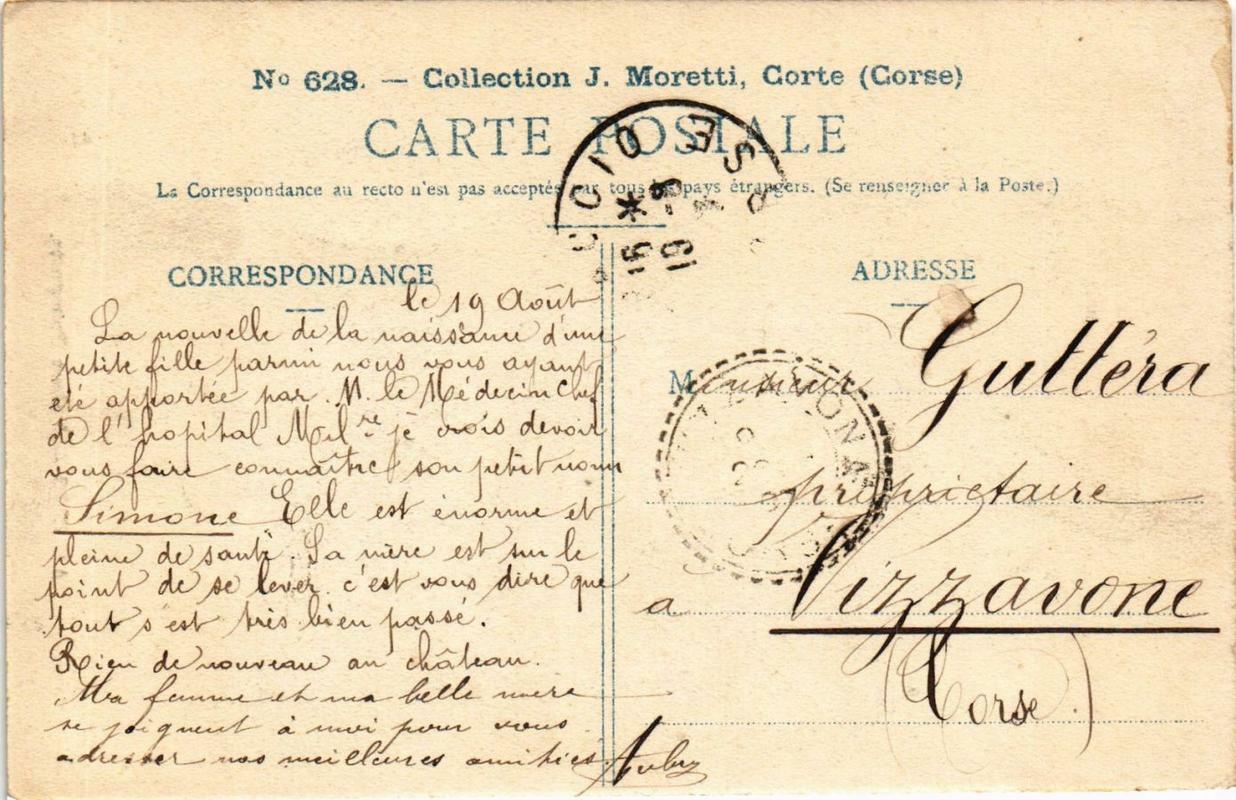 No 628. — Collection J. Moretti, Corte (Corse)
CARTE POSTALE
La Correspondance au recto n'est pas acceptée par tous les pays étrangers. (Se renseigner à la Poste.)
CORRESPONDANCE
le 19 Août
La nouvelle de la naissance d'une
petite fille parmi nous vous ayant
été apportée par M. le Médecin Chef
de l'hopital Milre je crois devoir
vous faire connaître son petit nom
Simone Elle est énorme et
pleine de santé. Sa mère est sur le
point de se lever c'est vous dire que
tout s'est très bien passé.
Rien de nouveau au château.
Ma femme et ma belle mère
se joignent à moi pour vous
adresser nos meilleures amitiés
ADRESSE
Monsieur Guttéra
propriétaire
a Vizzavone
(Corse)